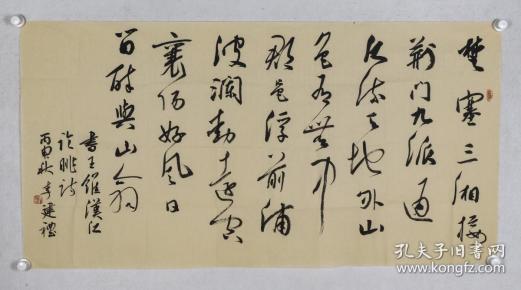 楚塞三湘接
荆门九派通
江流天地外山
色有无中
郡邑浮前浦
波澜动远空
襄阳好风日
留醉与山翁
书王维汉江
临眺诗
丙寅秋 李建礼
孔夫子旧书网